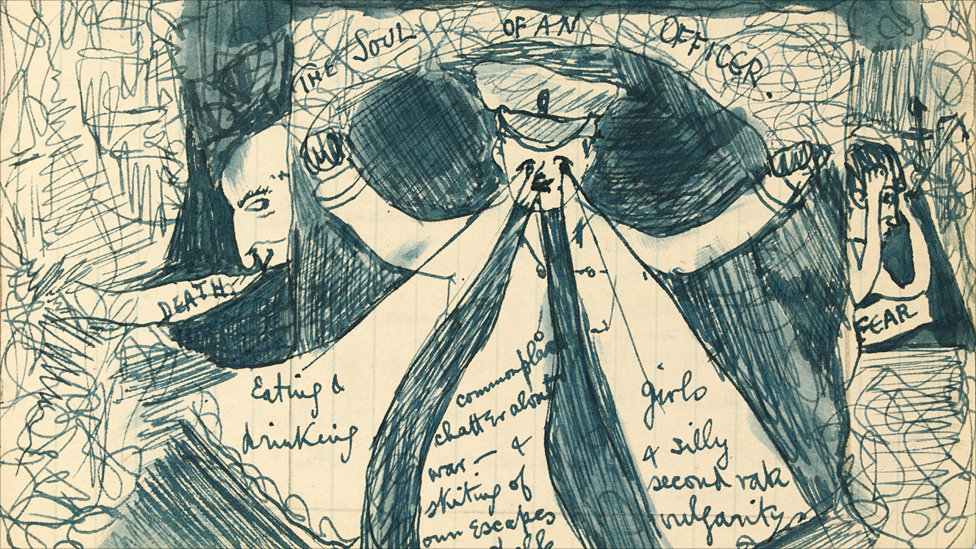 THE SOUL OF AN OFFICER.
DEATH
FEAR
Eating &
drinking
commonplace
chatter about
war - &
skiting of
own escapes
girls
& silly
second rate
vulgarity